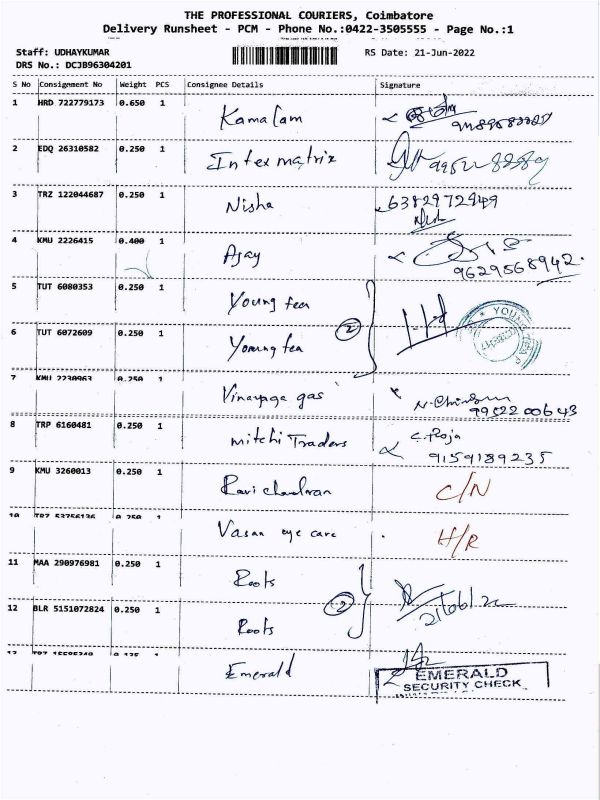 THE PROFESSIONAL COURIERS, Coimbatore
Delivery Runsheet - PCM - Phone No.:0422-3505555 - Page No.:1
Staff: UDHAYKUMAR
RS Date: 21-Jun-2022
DRS No.: DCJB96304201
S No Consignment No Weight PCS Consignee Details Signature
1 HRD 722779173 0.650 1 Kamalam
2 EDQ 26310582 0.250 1 Intex matrix
3 TRZ 122044687 0.250 1 Nisha 6382972949
4 KMU 2226415 0.400 1 Ajay 9629568942.
5 TUT 6080353 0.250 1 Young tea
2
6 TUT 6072609 0.250 1 Young tea
7 KMU 2230963 0.250 1 Vinayaga gas 9952200643
8 TRP 6160481 0.250 1 mitchi Traders C. Roja
9159189235
9 KMU 3260013 0.250 1 Ravi chandran C/N
10 TRZ 53756136 0.250 1 Vasan eye care H/R
11 MAA 290976981 0.250 1 Roots
2 21/06/22
12 BLR 5151072824 0.250 1 Roots
13 Emerald
EMERALD
SECURITY CHECK